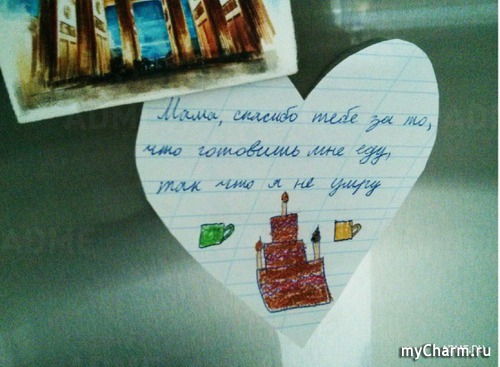 Мама, спасибо тебе за то,
что готовишь мне еду,
так что я не умру
myCharm.ru